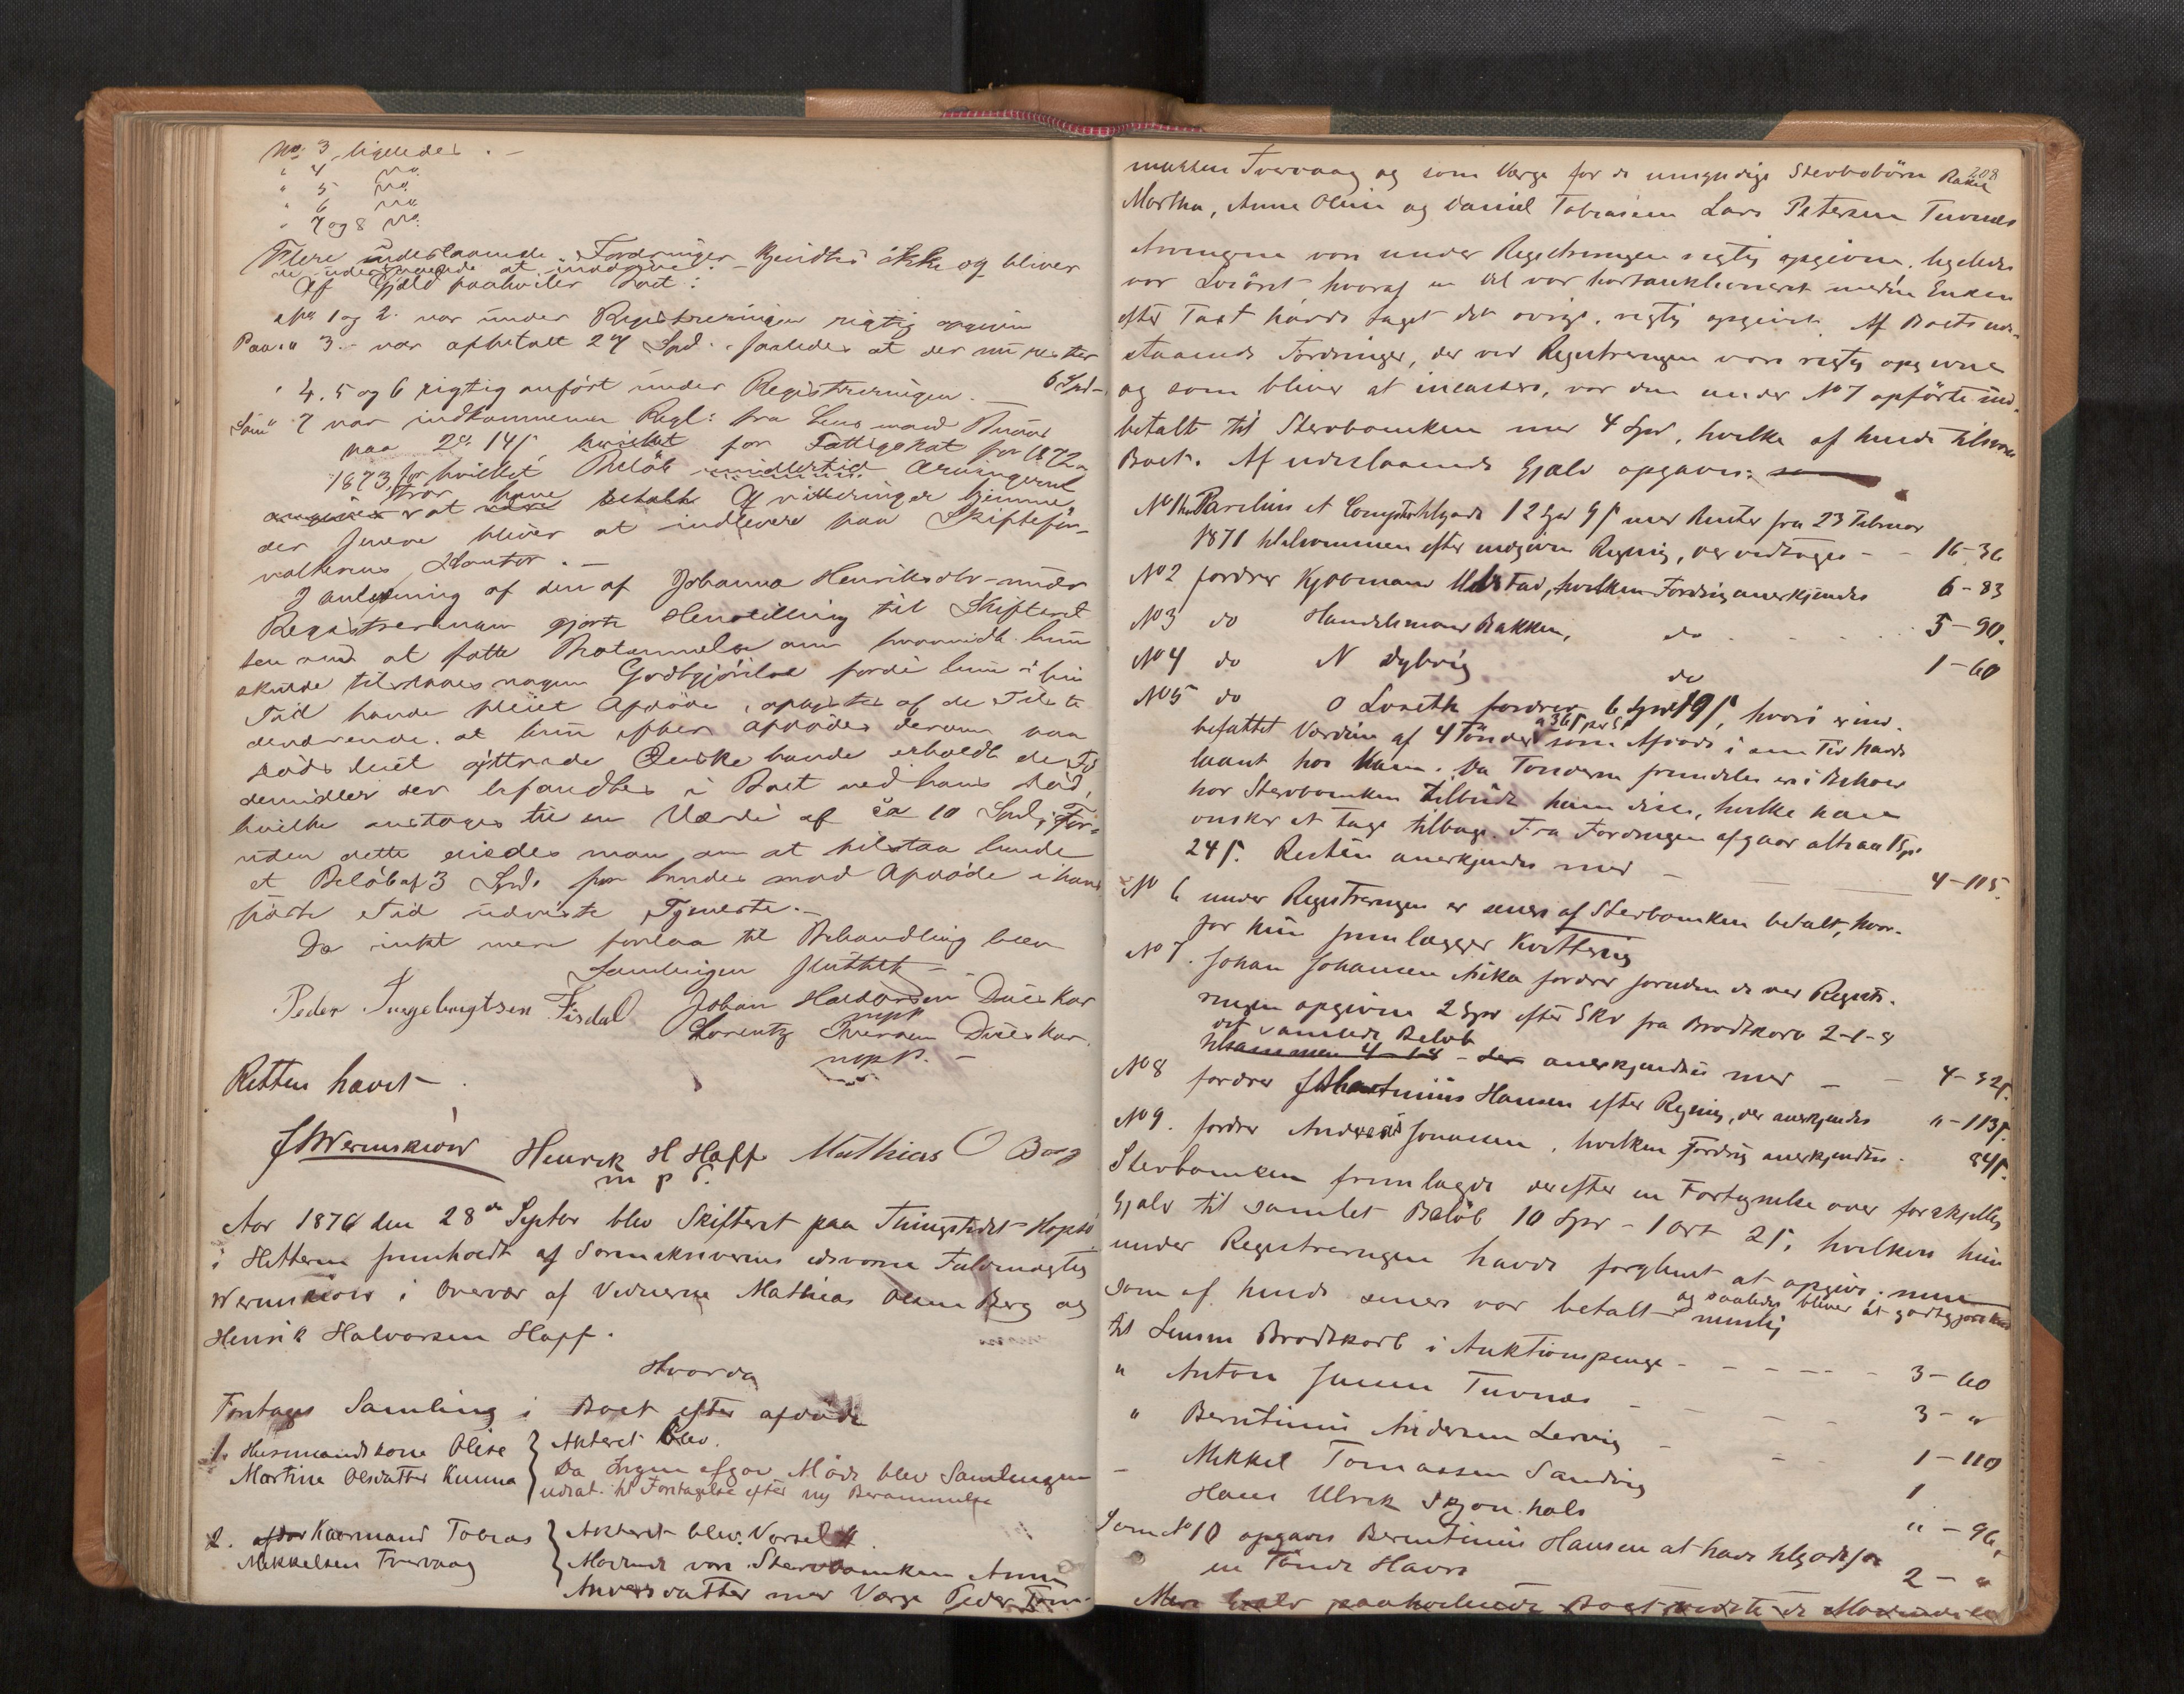 No 3 ligeledes . —
" 4 do.
" 5 do.
" 6 do.
" 7 og 8 do.
Flere udestaaende Fordringer kjendtes ikke og bliver
de udestaaende at inddrive. —
Af Gjæld paahviler Boet:
No 1 og 2. var under Registreringen rigtig opgiven
Paa " 3. — var afbetalt 24 Spd. saaledes at der nu rester
6 Spd —
" 4. 5 og 6 rigtig anført under Registreringen. —
Som " 7 var indkommen Regl: fra Lensmand
paa 2 14 s for Fattigskat for 1872 og
1873, for hvilket Beløb imidlertid Arvingerne
tror at have betalt Qvitteringer hjemme,
der senere bliver at indlevere paa Skiftefor-
valterens Kontor. —
I anledning af den af Johanna Henriksdtr under
Registreringen gjorte Henstilling til Skifteret
ten om at fatte Bestemmelse om hvorvidt hun
skulde tilstaaes nogen Godtgjørelse fordi hun i sin
Tid havde pleiet Afdøde, oplystes af de Tilste
deværende. at hun efter Afdødes derom paa
Døds leiet yttrede Ønske havde erholdt de Fø
demidler der befandtes i Boet ved hans Død,
hvilke antages til en Værdi af ca 10 Spd; For-
uden dette enedes man om at tilstaa hende
et Beløb af 3 Spd. for hendes mod Afdøde i hans
sidste Tid udviste Tjeneste. —
Da intet mere forelaa til Behandling blev
Samlingen sluttet —
Peder Ingebrigtsen Fisdal Johan Haldorsen Dueskar
mpp
Lorentz Iversen Dueskar.
mpP. —
Retten hævet —
JWernskiöld Henrik H Haff Mathias O Berg
m p P.
Aar 1876 den 28de Septbr blev Skifteret paa Thingstedet Hopsø
i Hitteren fremholdt af Sorenskriverens edsvorne Fuldmægtig
Wernskiöld i Overvær af Vidnerne Mathias Olsen Berg og
Henrik Halvorsen Haff.
Hvorda
Foretages Samling i Boet efter afdøde
1. Husmandskone Olise
Martine Olsdatter Kunna
Akteret blev.
Da Ingen afgav Møde blev Samlingen
udsat til Foretagelse efter ny Berammelse
2. Kaarmand Tobias
Mikkelsen Tvervaag
Akteret blev. Varsel
Mødende vare Stervboenken Anne
Andersdatter med Værge Peder Tom-
208
massen Tvervaag og som Værge for de umyndige Stervbobörn Rakel
Martha, Anne Oline og Daniel Tobiassen Lars Petersen Tuvnes
Arvingerne var under Registreringen rigtig opgivne. ligeledes
var Løsöret, hvoraf en Del var bortauktioneret medens Enken
efter Taxt havde taget det øvrige, rigtig opgivet. Af Boets ude-
staaende Fordringer, der ved Registreringen vare rigtig opgivne
og som bliver at incassere, var den under No 7 opförte ind-
betalt til Stervboenken med 4 Spd, hvilke af hende tilsvares
Boet. Af udestaaende Gjæld opgaves:
No 1 Parelius et Comp tilgode 12 Spd 9 s med Renter fra 23 Februar
1871 tilsammen efter indgiven Regning, der vedtages — — 16-36
No 2 fordrer Kjøbmand Ulstad, hvilken Fordring anerkjendes 6-83
No 3 do Handelsmand Bakken, do . . . . . 5-90.
No 4 do N Dybvig do 1-60
No 5 do O Loseth fordrer 6 Spd 19 s, hvori er ind-
befattet Værdien af 4 Tönder a 36 s pr St som Afdøde i sin Tid havde
laant hos ham. Da Tönderne fremdeles er i Behold
har Stervboenken tilbudt ham disse, hvilke han
ønsker at tage tilbage. Fra Fordringen afgaar altsaa 1 Spd
24 s. Resten anerkjendes med — 4-115.
No 6 under Registreringen er senere af Stervboenken betalt, hvor-
for hun fremlægger Kvittering
No 7. Johan Johansen Aika fordrer foruden de ved Registre-
ringen opgivne 2 Spd efter Skr fra Brodtkorb 2-1-8
det samlede Beløb
tilsammen 4-1-8 — der anerkjendtes med — — 4-32 s.
No 8 fordrer Martinus Hansen efter Regning, der anerkjendes " - 113 s.
No 9. fordrer Andreas Jonassen, hvilken Fordring anerkjendtes. 84 s.
Stervboenken fremlagde derefter en Fortegnelse over forskjellig
Gjæld til samlet Beløb 10 Spd — 1 ort 2 s, hvilken hun
under Registreringen havde forglemt at opgive, men
som af hende senere var betalt og saaledes bliver at godtgjøre hende
nemlig
til Lensm Brodtkorb i Auktionspenge — — — — — 3-60
" Anton Jensen Tuvnes — — — 3- "
" Berntinus Andersen Lervig — — 1-110
— Mikkel Tomassen Sandvig 1
Hans Ulrik Skjønhals " - 96,
Som No 10 opgaves Berntinus Hansen at have tilgode for
en Tønde Havre 2 - "
Mere Gjæld paahvilende Boet vidste de Mødende ikke